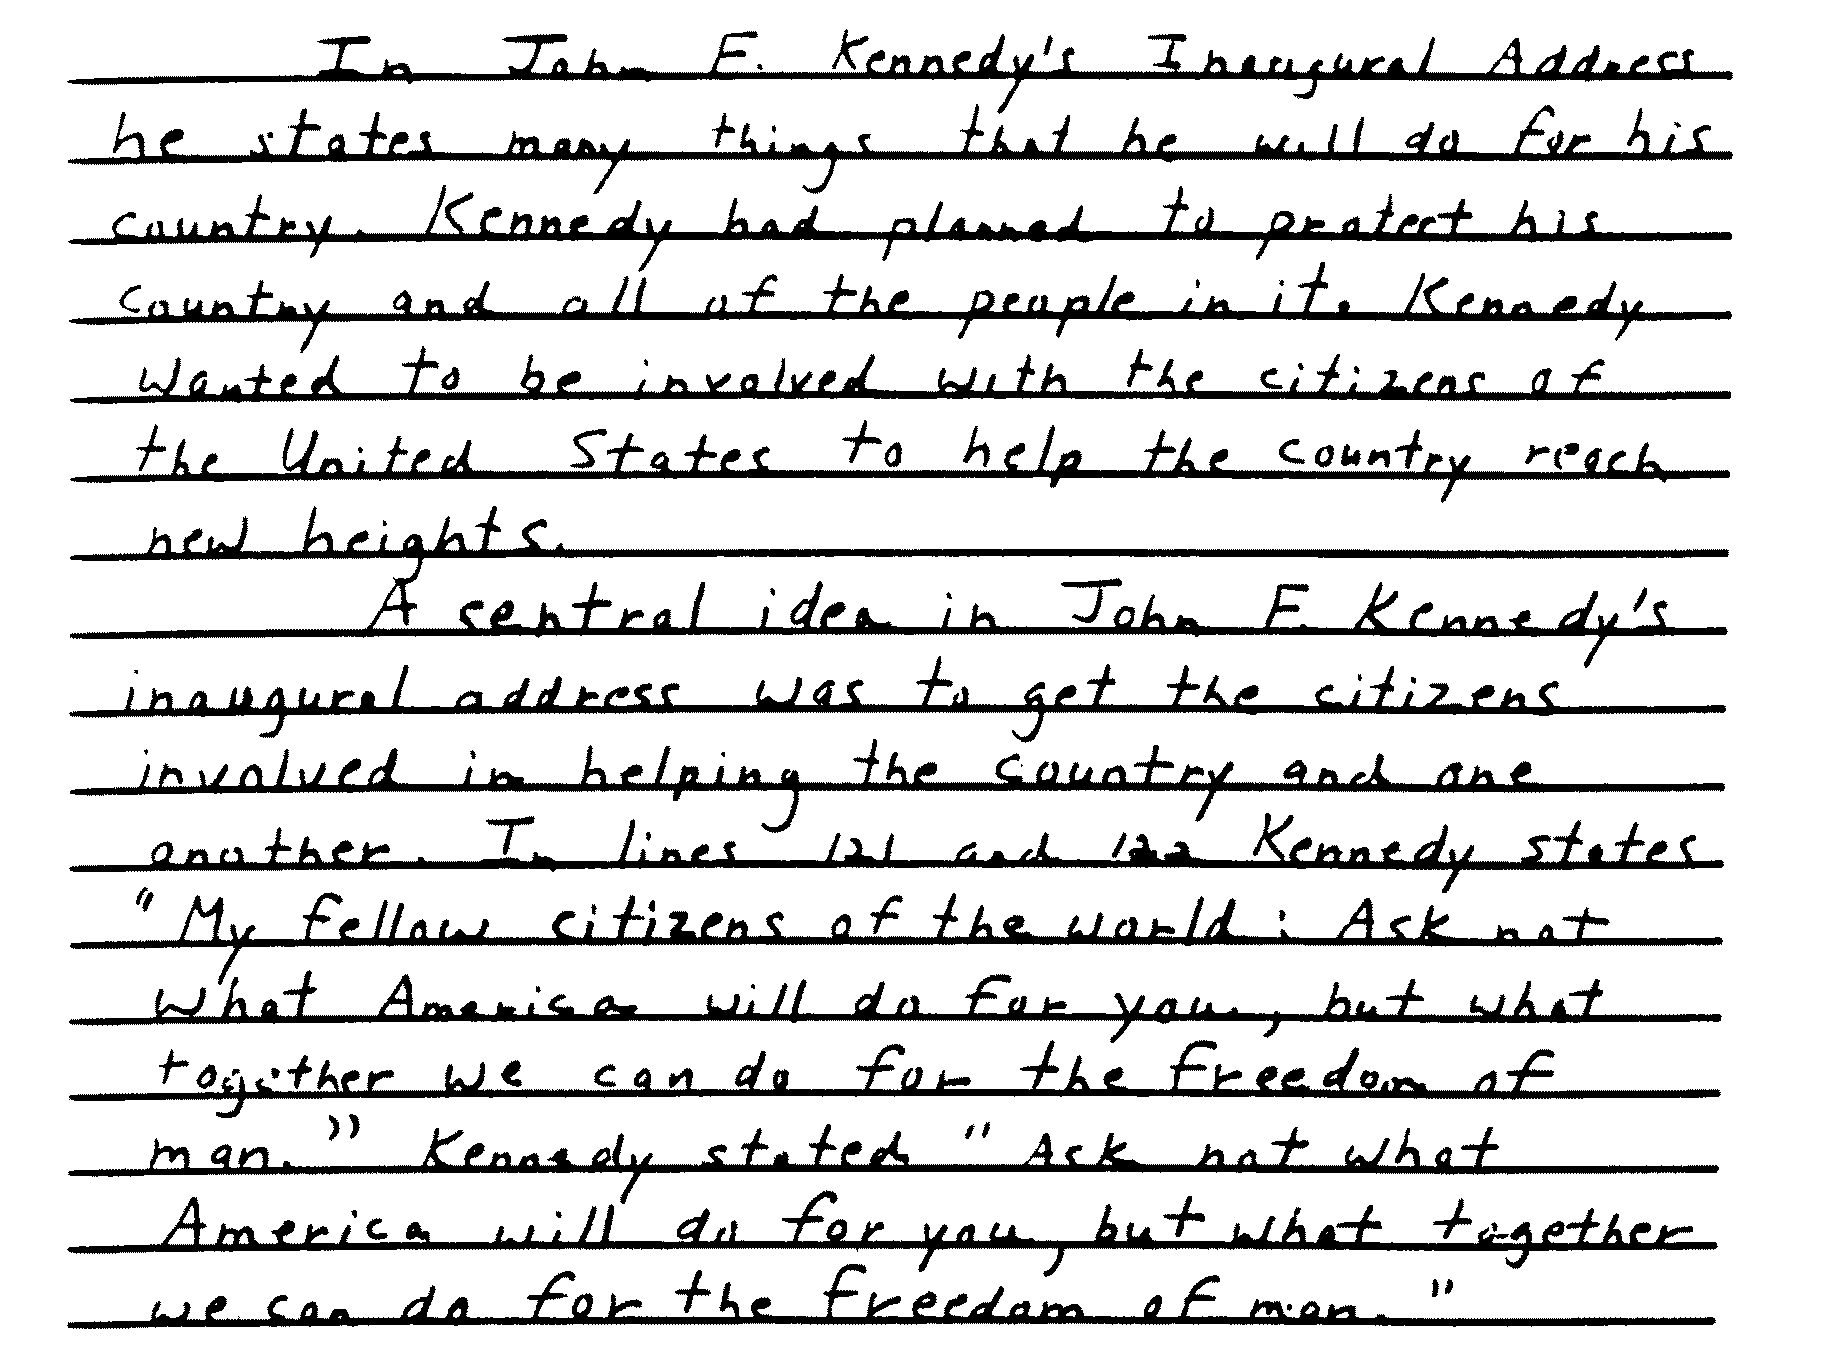 In John F. Kennedy's Inaugural Address
he states many things that he will do for his
country. Kennedy had planned to protect his
country and all of the people in it. Kennedy
wanted to be involved with the citizens of
the United States to help the country reach
new heights.
A sentral idea in John F. Kennedy's
inaugural address was to get the citizens
involved in helping the country and one
another. In lines 121 and 122 Kennedy states
"My fellow citizens of the world: Ask not
what America will do for you, but what
together we can do for the freedom of
man." Kennedy stated "Ask not what
America will do for you, but what together
we can do for the freedom of man."